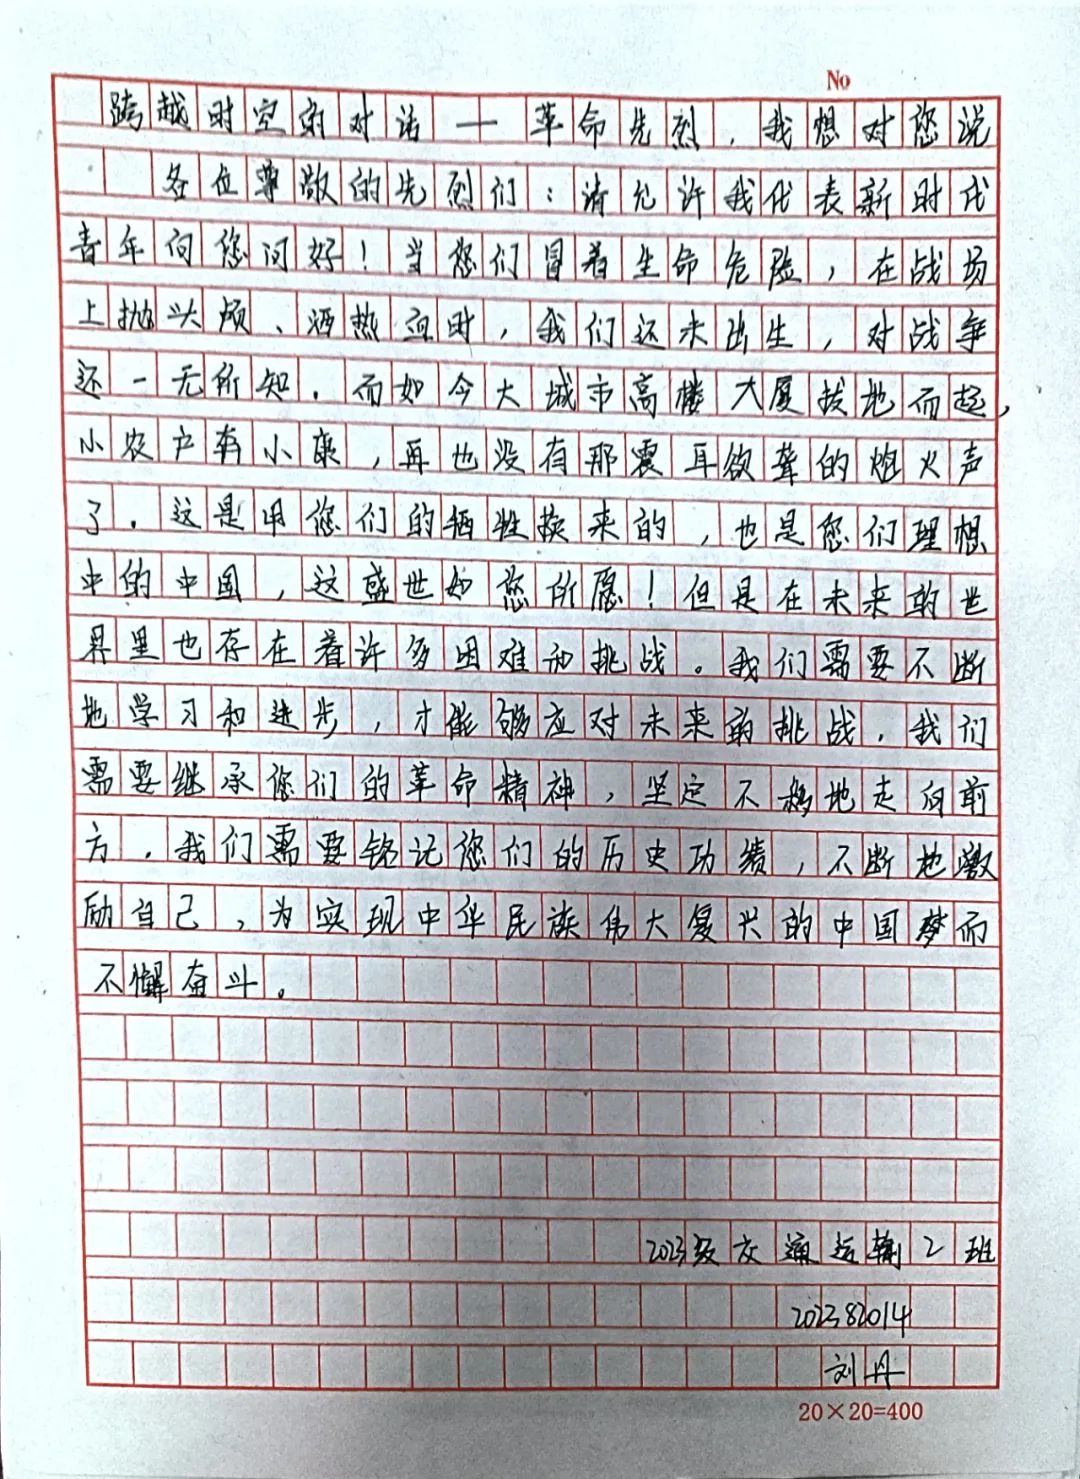 No
跨越时空的对话——革命先烈，我想对您说
各位尊敬的先烈们：请允许我代表新时代
青年向您问好！当您们冒着生命危险，在战场
上抛头颅、洒热血时，我们还未出生，对战争
还一无所知。而如今大城市高楼大厦拔地而起，
小农户奔小康，再也没有那震耳欲聋的炮火声
了。这是用您们的牺牲换来的，也是您们理想
中的中国，这盛世如您所愿！但是在未来的世
界里也存在着许多困难和挑战。我们需要不断
地学习和进步，才能够应对未来的挑战。我们
需要继承您们的革命精神，坚定不移地走向前
方。我们需要铭记您们的历史功绩，不断地激
励自己，为实现中华民族伟大复兴的中国梦而
不懈奋斗。
2023级交通运输2班
202382014
刘丹
20×20=400